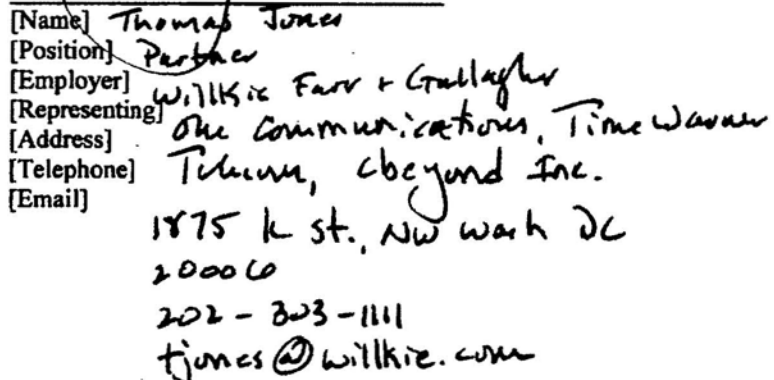 [Name] Thomas Jones
[Position] Partner
[Employer] Willkie Farr + Gallagher
[Representing] One Communications, Time Warner
[Address] Telecom, Cbeyond Inc.
[Telephone]
[Email]
1875 K St., NW Wash DC
20006
202-303-1111
tjones@willkie.com